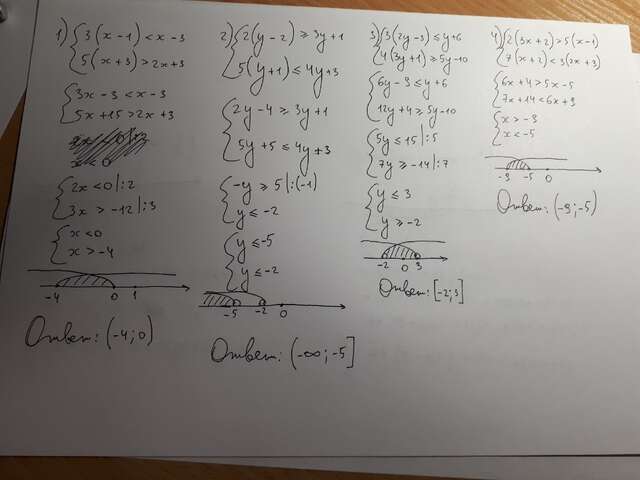 1) { 3(x-1)<x-3
5(x+3)>2x+3
{ 3x-3<x-3
5x+15>2x+3
x<0
{ 2x<0|:2
3x>-12|:3
{ x<0
x>-4
-4 0 1
Ответ: (-4;0)
2) { 2(y-2)≥3y+1
5(y+1)≤4y+3
{ 2y-4≥3y+1
5y+5≤4y+3
{ -y≥5|:(-1)
y≤-2
{ y≤-5
y≤-2
-5 -2 0
Ответ: (-∞;-5]
3) { 3(2y-3)≤y+6
4(3y+1)≥5y-10
{ 6y-9≤y+6
12y+4≥5y-10
{ 5y≤15|:5
7y≥-14|:7
{ y≤3
y≥-2
-2 0 3
Ответ: [-2;3]
4) { 2(3x+2)>5(x-1)
7(x+2)<3(2x+3)
{ 6x+4>5x-5
7x+14<6x+9
{ x>-9
x<-5
-9 -5 0
Ответ: (-9;-5)